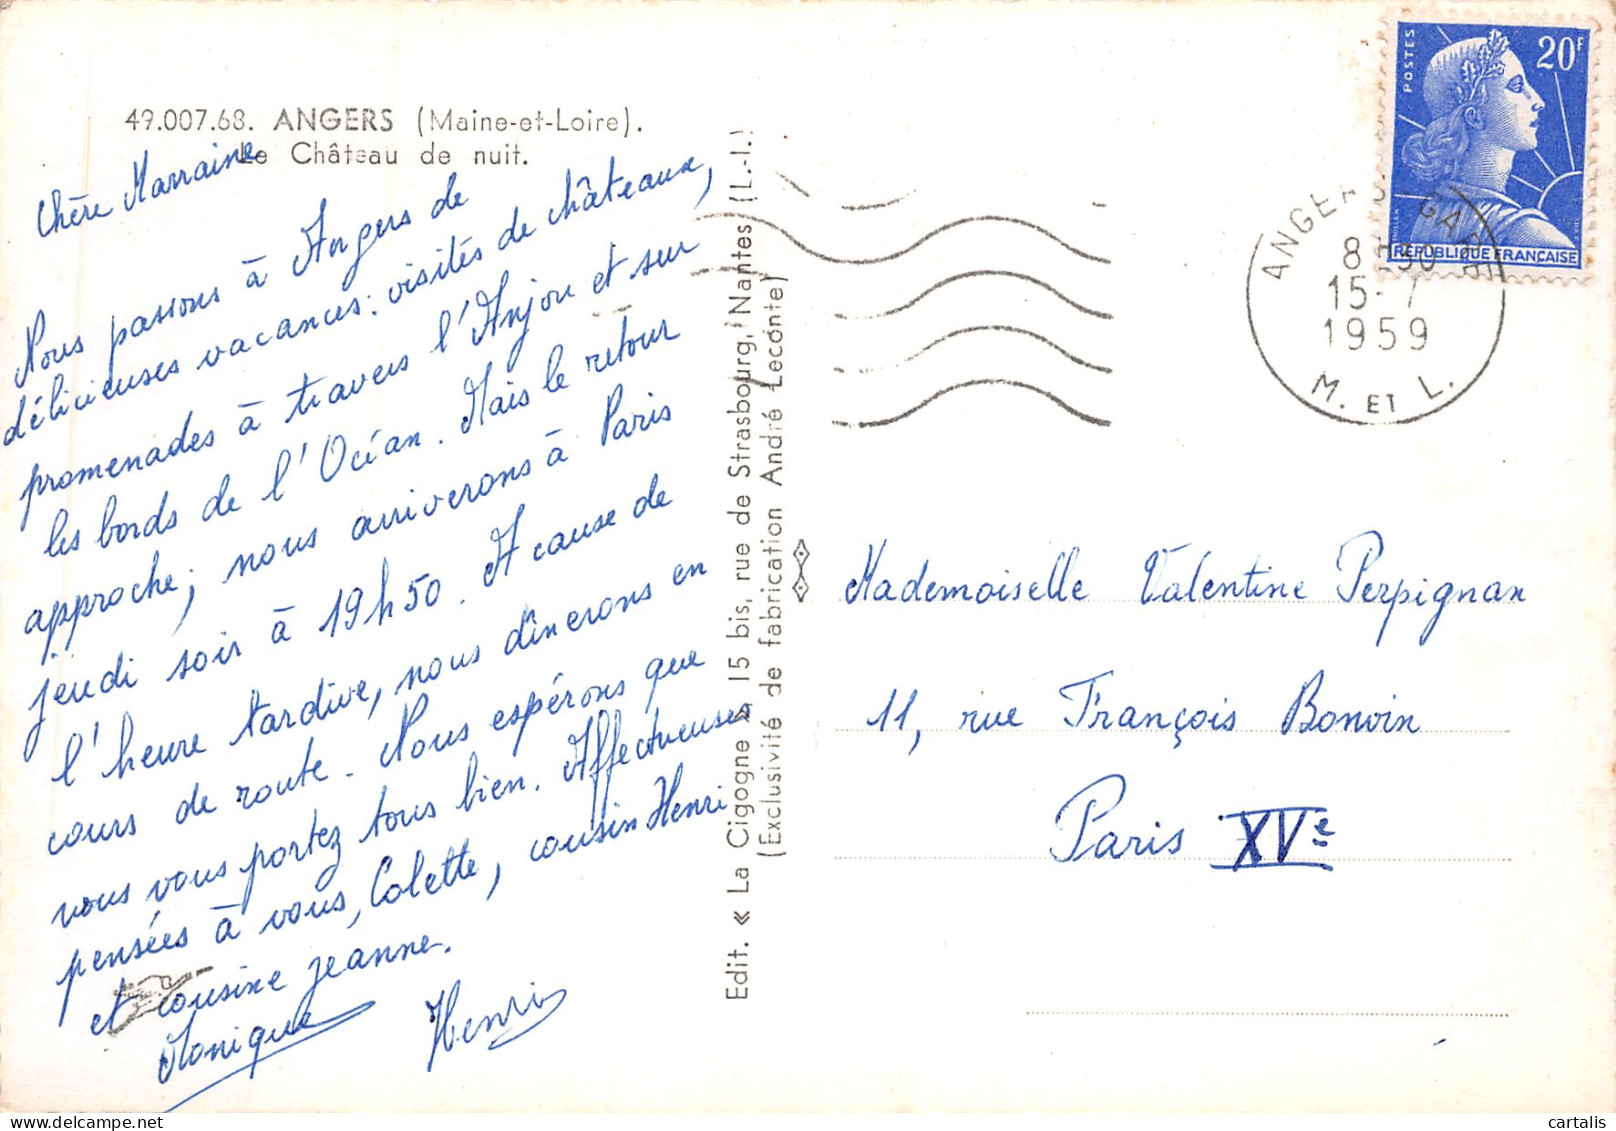 49.007.68. ANGERS (Maine-et-Loire).
Le Château de nuit.
Chère Marraine
Nous passons à Angers de
délicieuses vacances : visites de châteaux,
promenades à travers l'Anjou et sur
les bords de l'Océan. Mais le retour
approche ; nous arriverons à Paris
jeudi soir à 19h50. A cause de
l'heure tardive, nous dînerons en
cours de route. Nous espérons que
vous vous portez tous bien. Affectueuses
pensées à vous, Colette, cousin Henri
et cousine Jeanne.
Monique Henri
Edit. « La Cigogne » 15 bis, rue de Strasbourg, Nantes (L.-I.)
(Exclusivité de fabrication André Leconte)
POSTES
20F
RÉPUBLIQUE FRANÇAISE
ANGERS GARE
8H30
15-7
1959
M. ET L.
Mademoiselle Valentine Perpignan
11, rue François Bonvin
Paris XVe
cartalis